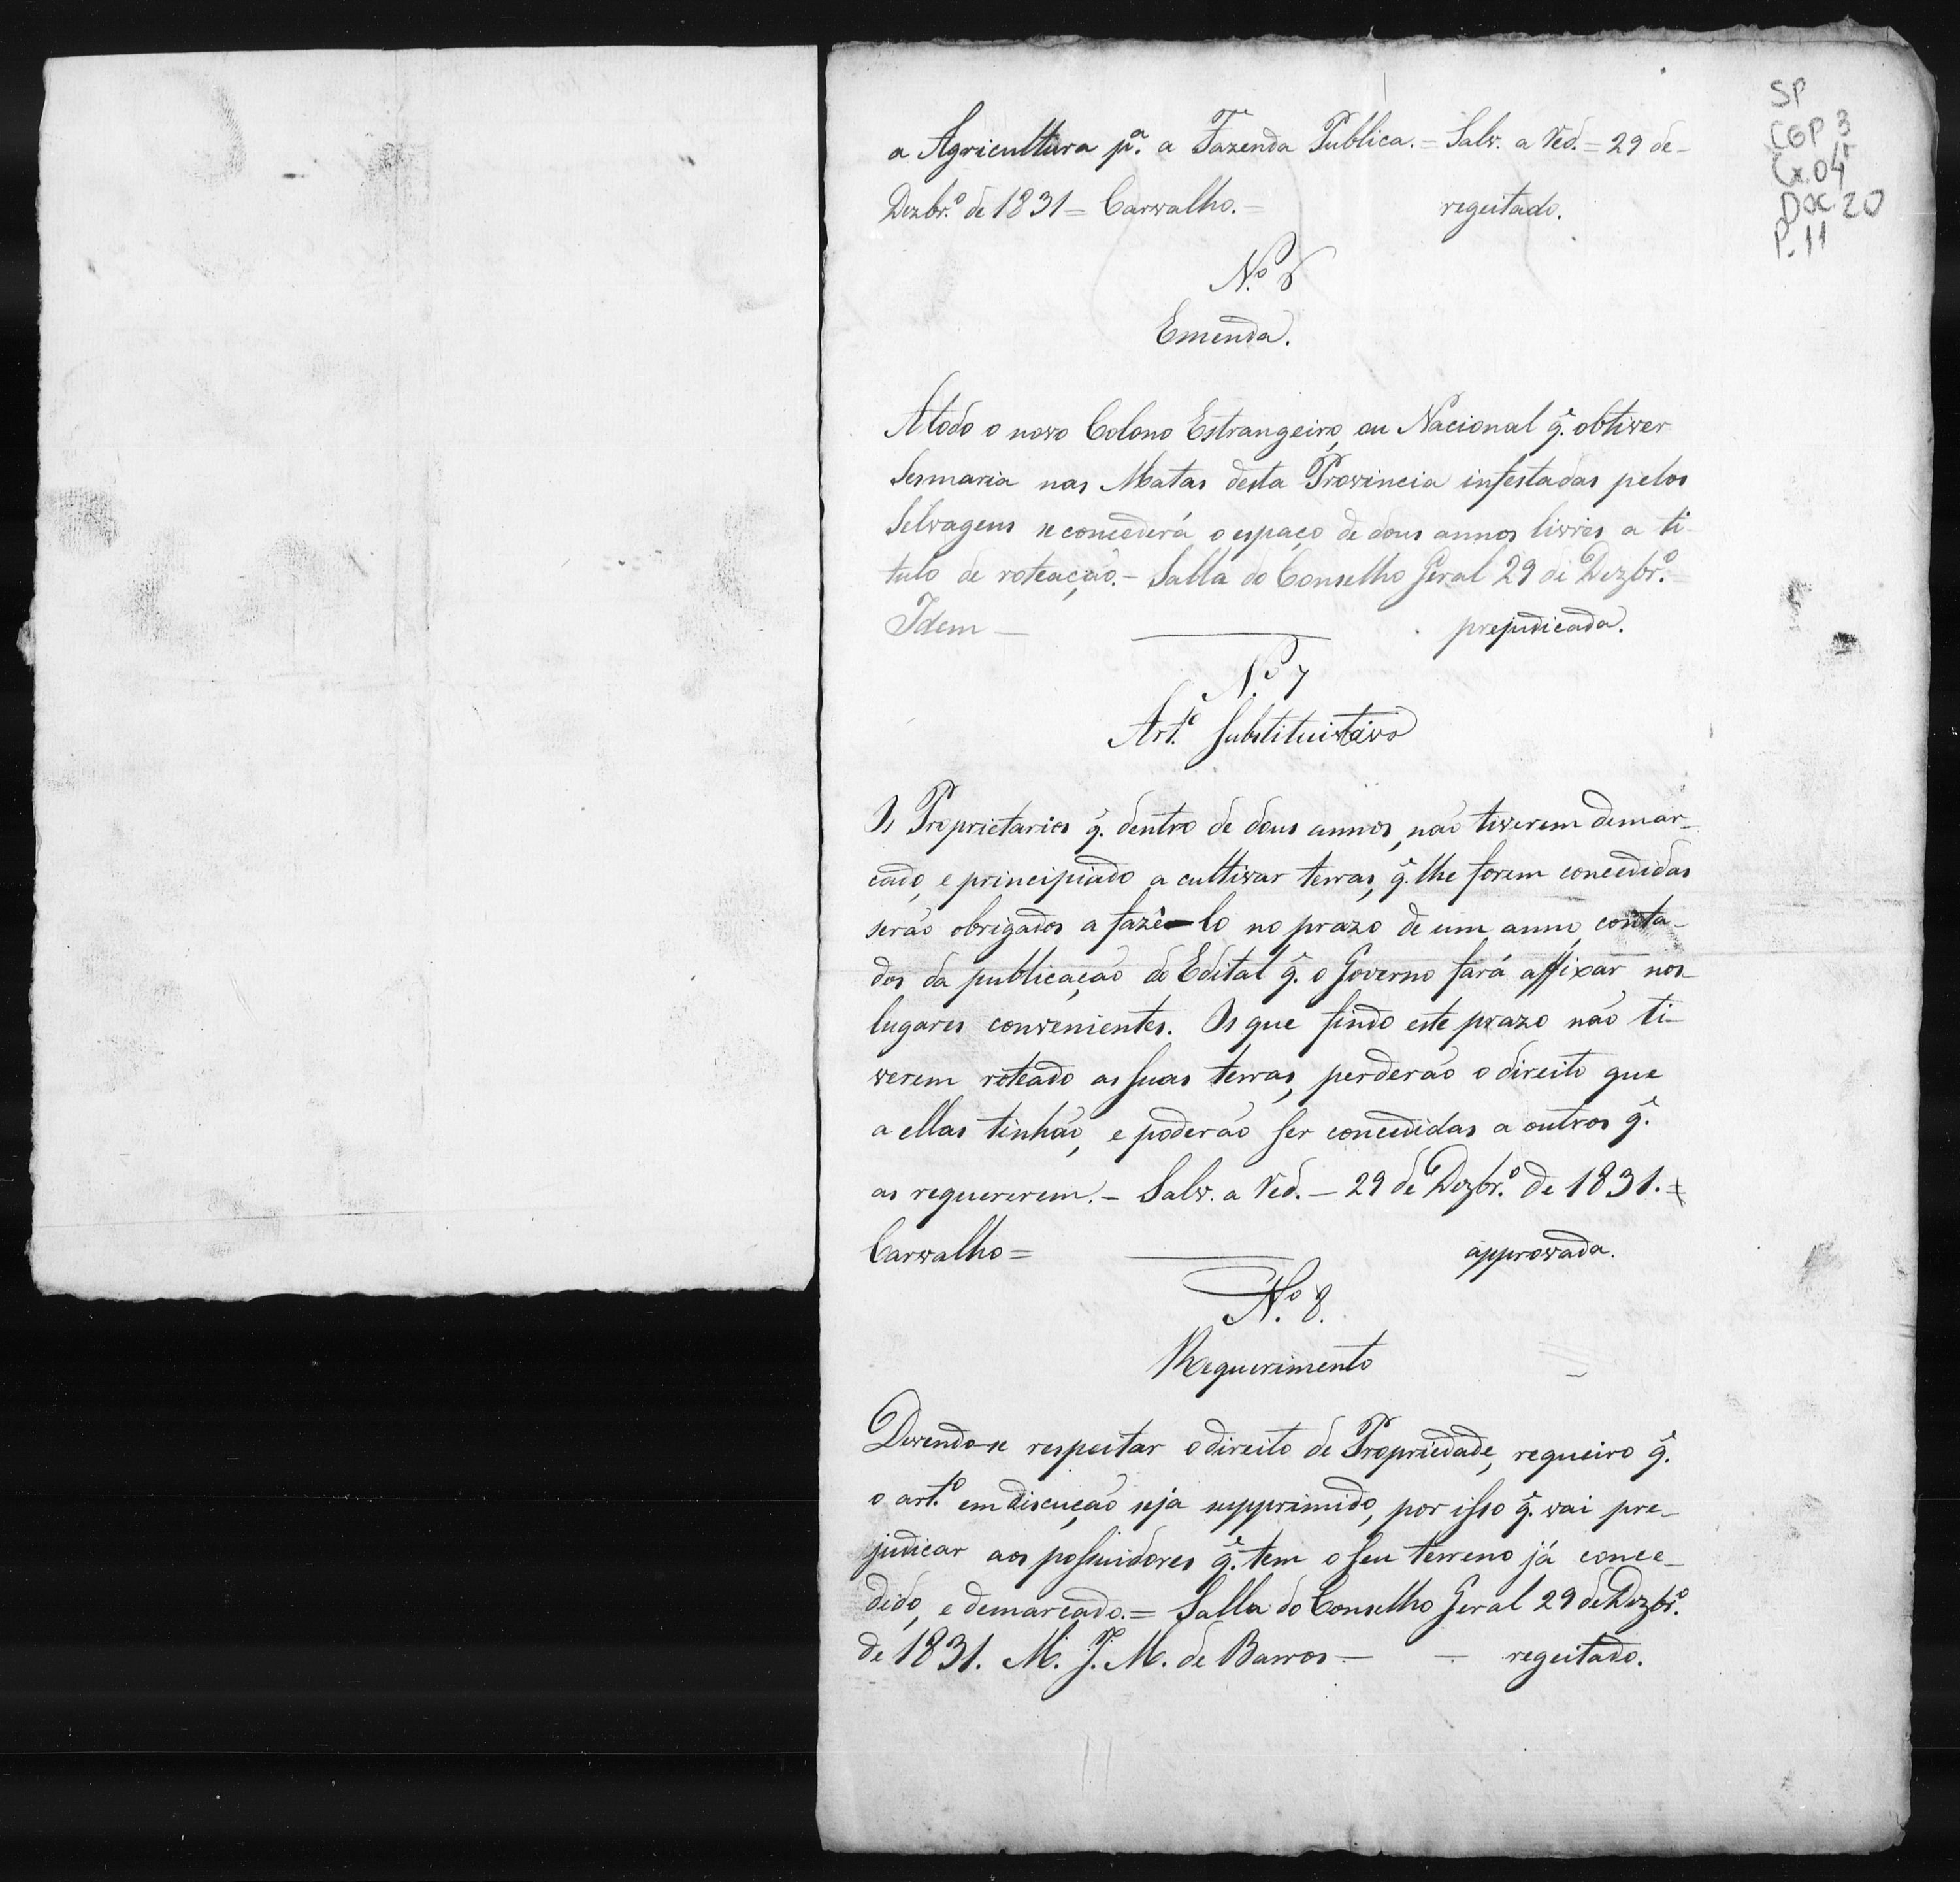 SP
CGP 3
Cx. 04
Doc 20
P. 11
a Agricultura pª. a Fazenda Publica. = Salv. a Red. = 29 de
Dezbr.º de 1831 = Carvalho. = regeitado.
N.º 6
Emenda.
A todo o novo Colono Estrangeiro, ou Nacional q̃. obtiver
Sesmaria nas Matas desta Provincia infestadas pelos
Selvagens se concederá o espaço de dous annos livres a ti
tulo de roteação. - Salla do Conselho Geral 29 de Dezbr.º =
Idem — prejudicada.
N.º 7
Art.º Substituitivo
Os Proprietarios q̃. dentro de dous annos, não tiverem demar-
cado, e principiado a cultivar terras, q̃. lhe forem concedidas
serão obrigados a fazê-lo no prazo de um anno, conta-
dos da publicação do Edital q̃. o Governo fará affixar nos
lugares convenientes. Os que findo este prazo não ti-
verem roteado as suas terras, perderão o direito que
a ellas tinhão, e poderão ser concedidas a outros q̃.
as requererem. - Salv. a Red. - 29 de Dezbr.º de 1831. =
Carvalho = approvada.
N.º 8.
Requerimento
Devendo-se respeitar o direito de Propriedade, requeiro q̃.
o art.º em discução seja supprimido, por isso q̃. vai pre-
judicar aos possuidores q̃. tem o seu terreno já conce-
dido, e demarcado. = Salla do Conselho Geral 29 de Dezbr.º
de 1831. M. J. M. de Barros - - regeitado.